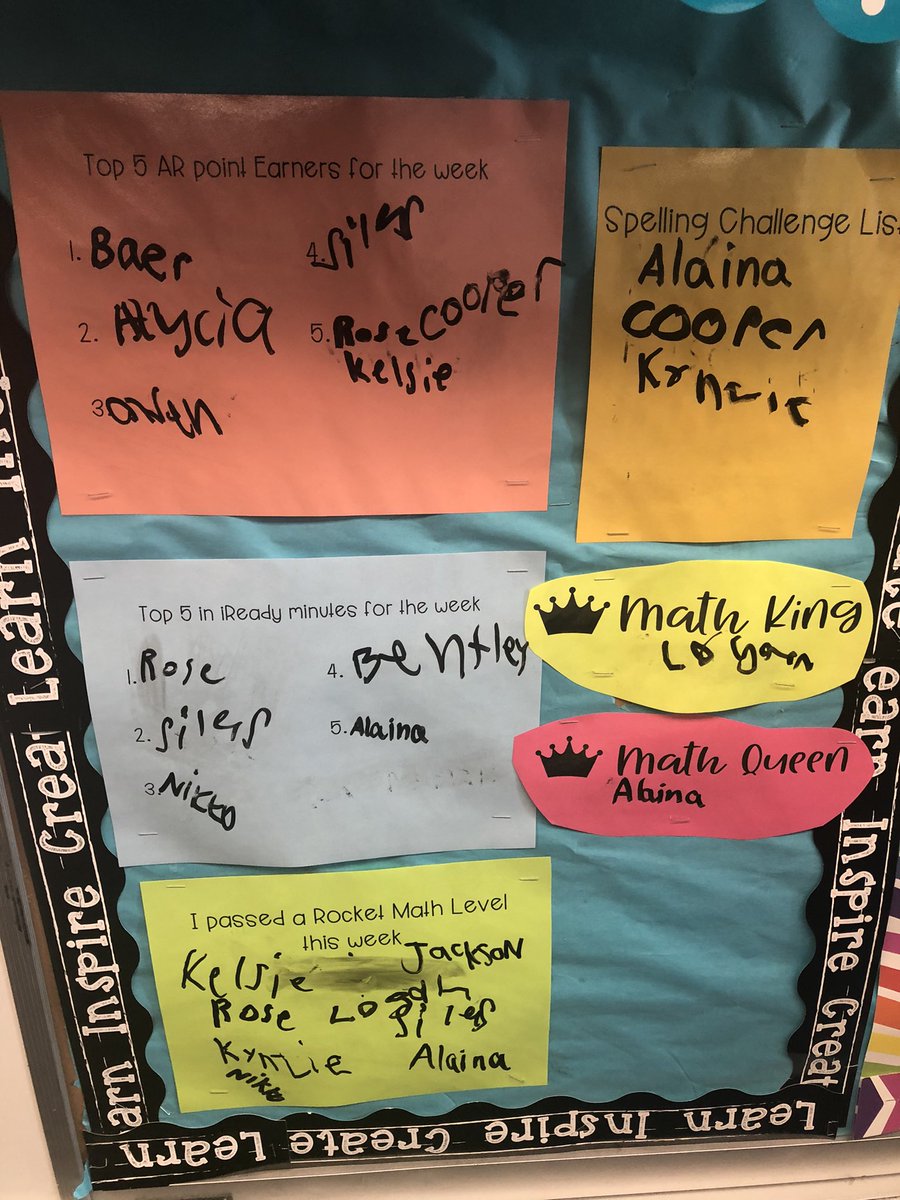 Top 5 AR point Earners for the week
1. Baer
2. Alycia
3. Owen
4. Siles
5. Rose Cooper
Kelsie
Spelling Challenge List
Alaina
Cooper
Top 5 in iReady minutes for the week
1. Rose
2. Siles
3. Nikko
4. Bentley
5. Alaina
Math King
Logan
Math Queen
Alaina
I passed a Rocket Math Level
this week
Kelsie Jackson
Rose Logan
Siles
Alaina
Nikko
Learn Inspire Create Learn
Learn Inspire Create Learn
Learn Inspire Create